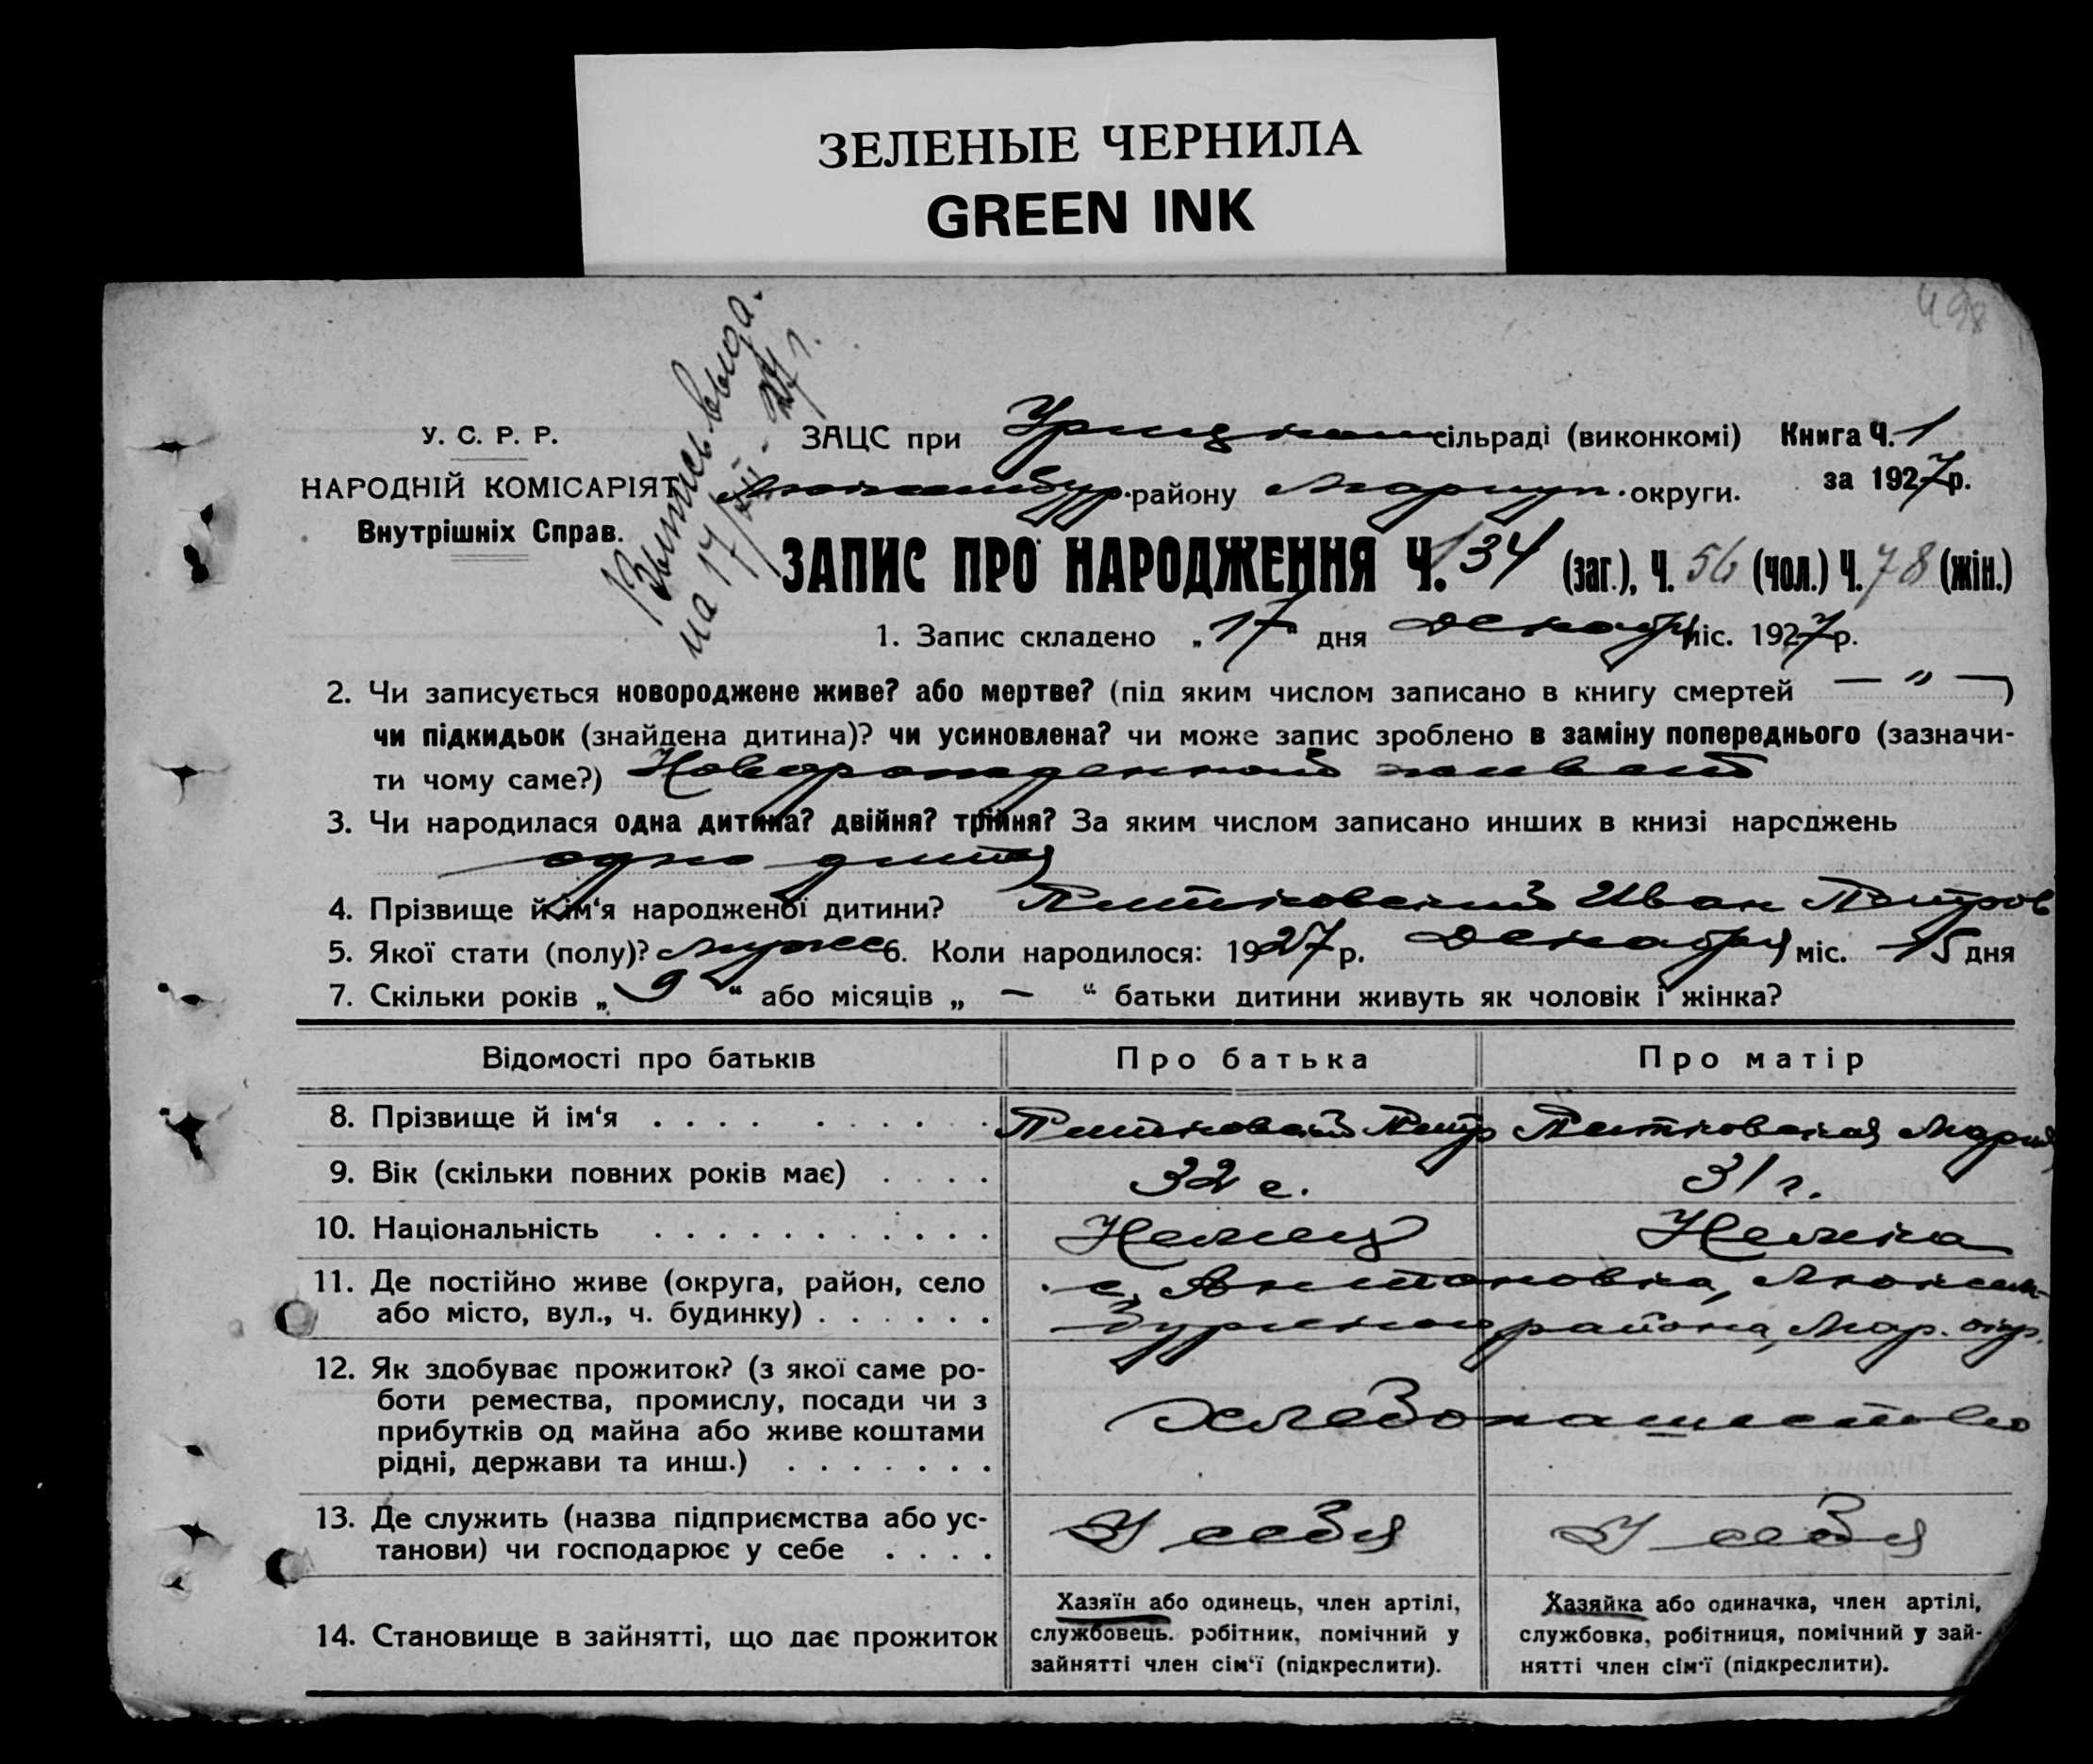 ЗЕЛЕНЫЕ ЧЕРНИЛА
GREEN INK
498
Выпись выда.
на 17/XII-27 г.
У. С. Р. Р.
НАРОДНІЙ КОМІСАРІЯТ
Внутрішніх Справ.
ЗАЦС при Урицком сільраді (виконкомі) Книга Ч. 1
Люксембур. району Мариуп. округи. за 1927 р.
ЗАПИС ПРО НАРОДЖЕННЯ Ч. 134 (заг.), Ч. 56 (чол.) Ч. 78 (жін.)
1. Запис складено „17" дня Декабря міс. 1927 р.
2. Чи записується новороджене живе? або мертве? (під яким числом записано в книгу смертей — " —)
чи підкидьок (знайдена дитина)? чи усиновлена? чи може запис зроблено в заміну попереднього (зазначи-
ти чому саме?) Новорожденный живой
3. Чи народилася одна дитина? двійня? трійня? За яким числом записано инших в книзі народжень
одно дитя
4. Прізвище й ім'я народженої дитини? Питковский Иван Петров
5. Якої стати (полу)? мужс 6. Коли народилося: 1927 р. Декабря міс. 15 дня
7. Скільки років „ 9 " або місяців „ — " батьки дитини живуть як чоловік і жінка?
Відомості про батьків Про батька Про матір
8. Прізвище й ім'я . . . . . . . . . . Питковский Петр Питковская Мария
9. Вік (скільки повних років має) . . . . 32 г. 31 г.
10. Національність . . . . . . . . . . . . Немец Немка
11. Де постійно живе (округа, район, село с. Антоновка, Люксем-
або місто, вул., ч. будинку) . . . . . . бургского района, Мар. окр.
12. Як здобуває прожиток? (з якої саме ро-
боти ремества, промислу, посади чи з Хлебопашество
прибутків од майна або живе коштами
рідні, держави та инш.) . . . . . . .
13. Де служить (назва підприємства або ус- У себя У себя
танови) чи господарює у себе . . . .
14. Становище в зайнятті, що дає прожиток
Хазяїн або одинець, член артілі,
службовець. робітник, помічний у
зайнятті член сім'ї (підкреслити).
Хазяйка або одиначка, член артілі,
службовка, робітниця, помічний у зай-
нятті член сім'ї (підкреслити).